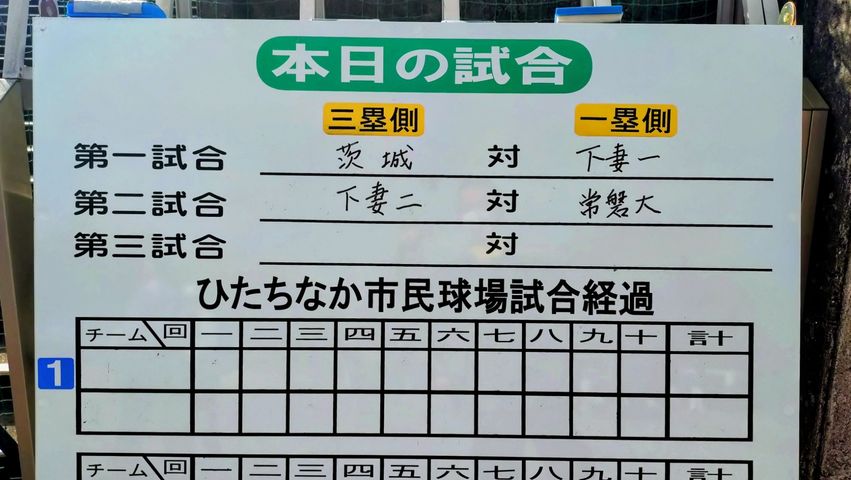 本日の試合
三塁側 一塁側
第一試合 茨城 対 下妻一
第二試合 下妻二 対 常磐大
第三試合 対
ひたちなか市民球場試合経過
チーム 回 一 二 三 四 五 六 七 八 九 十 計
1
チーム 回 一 二 三 四 五 六 七 八 九 十 計